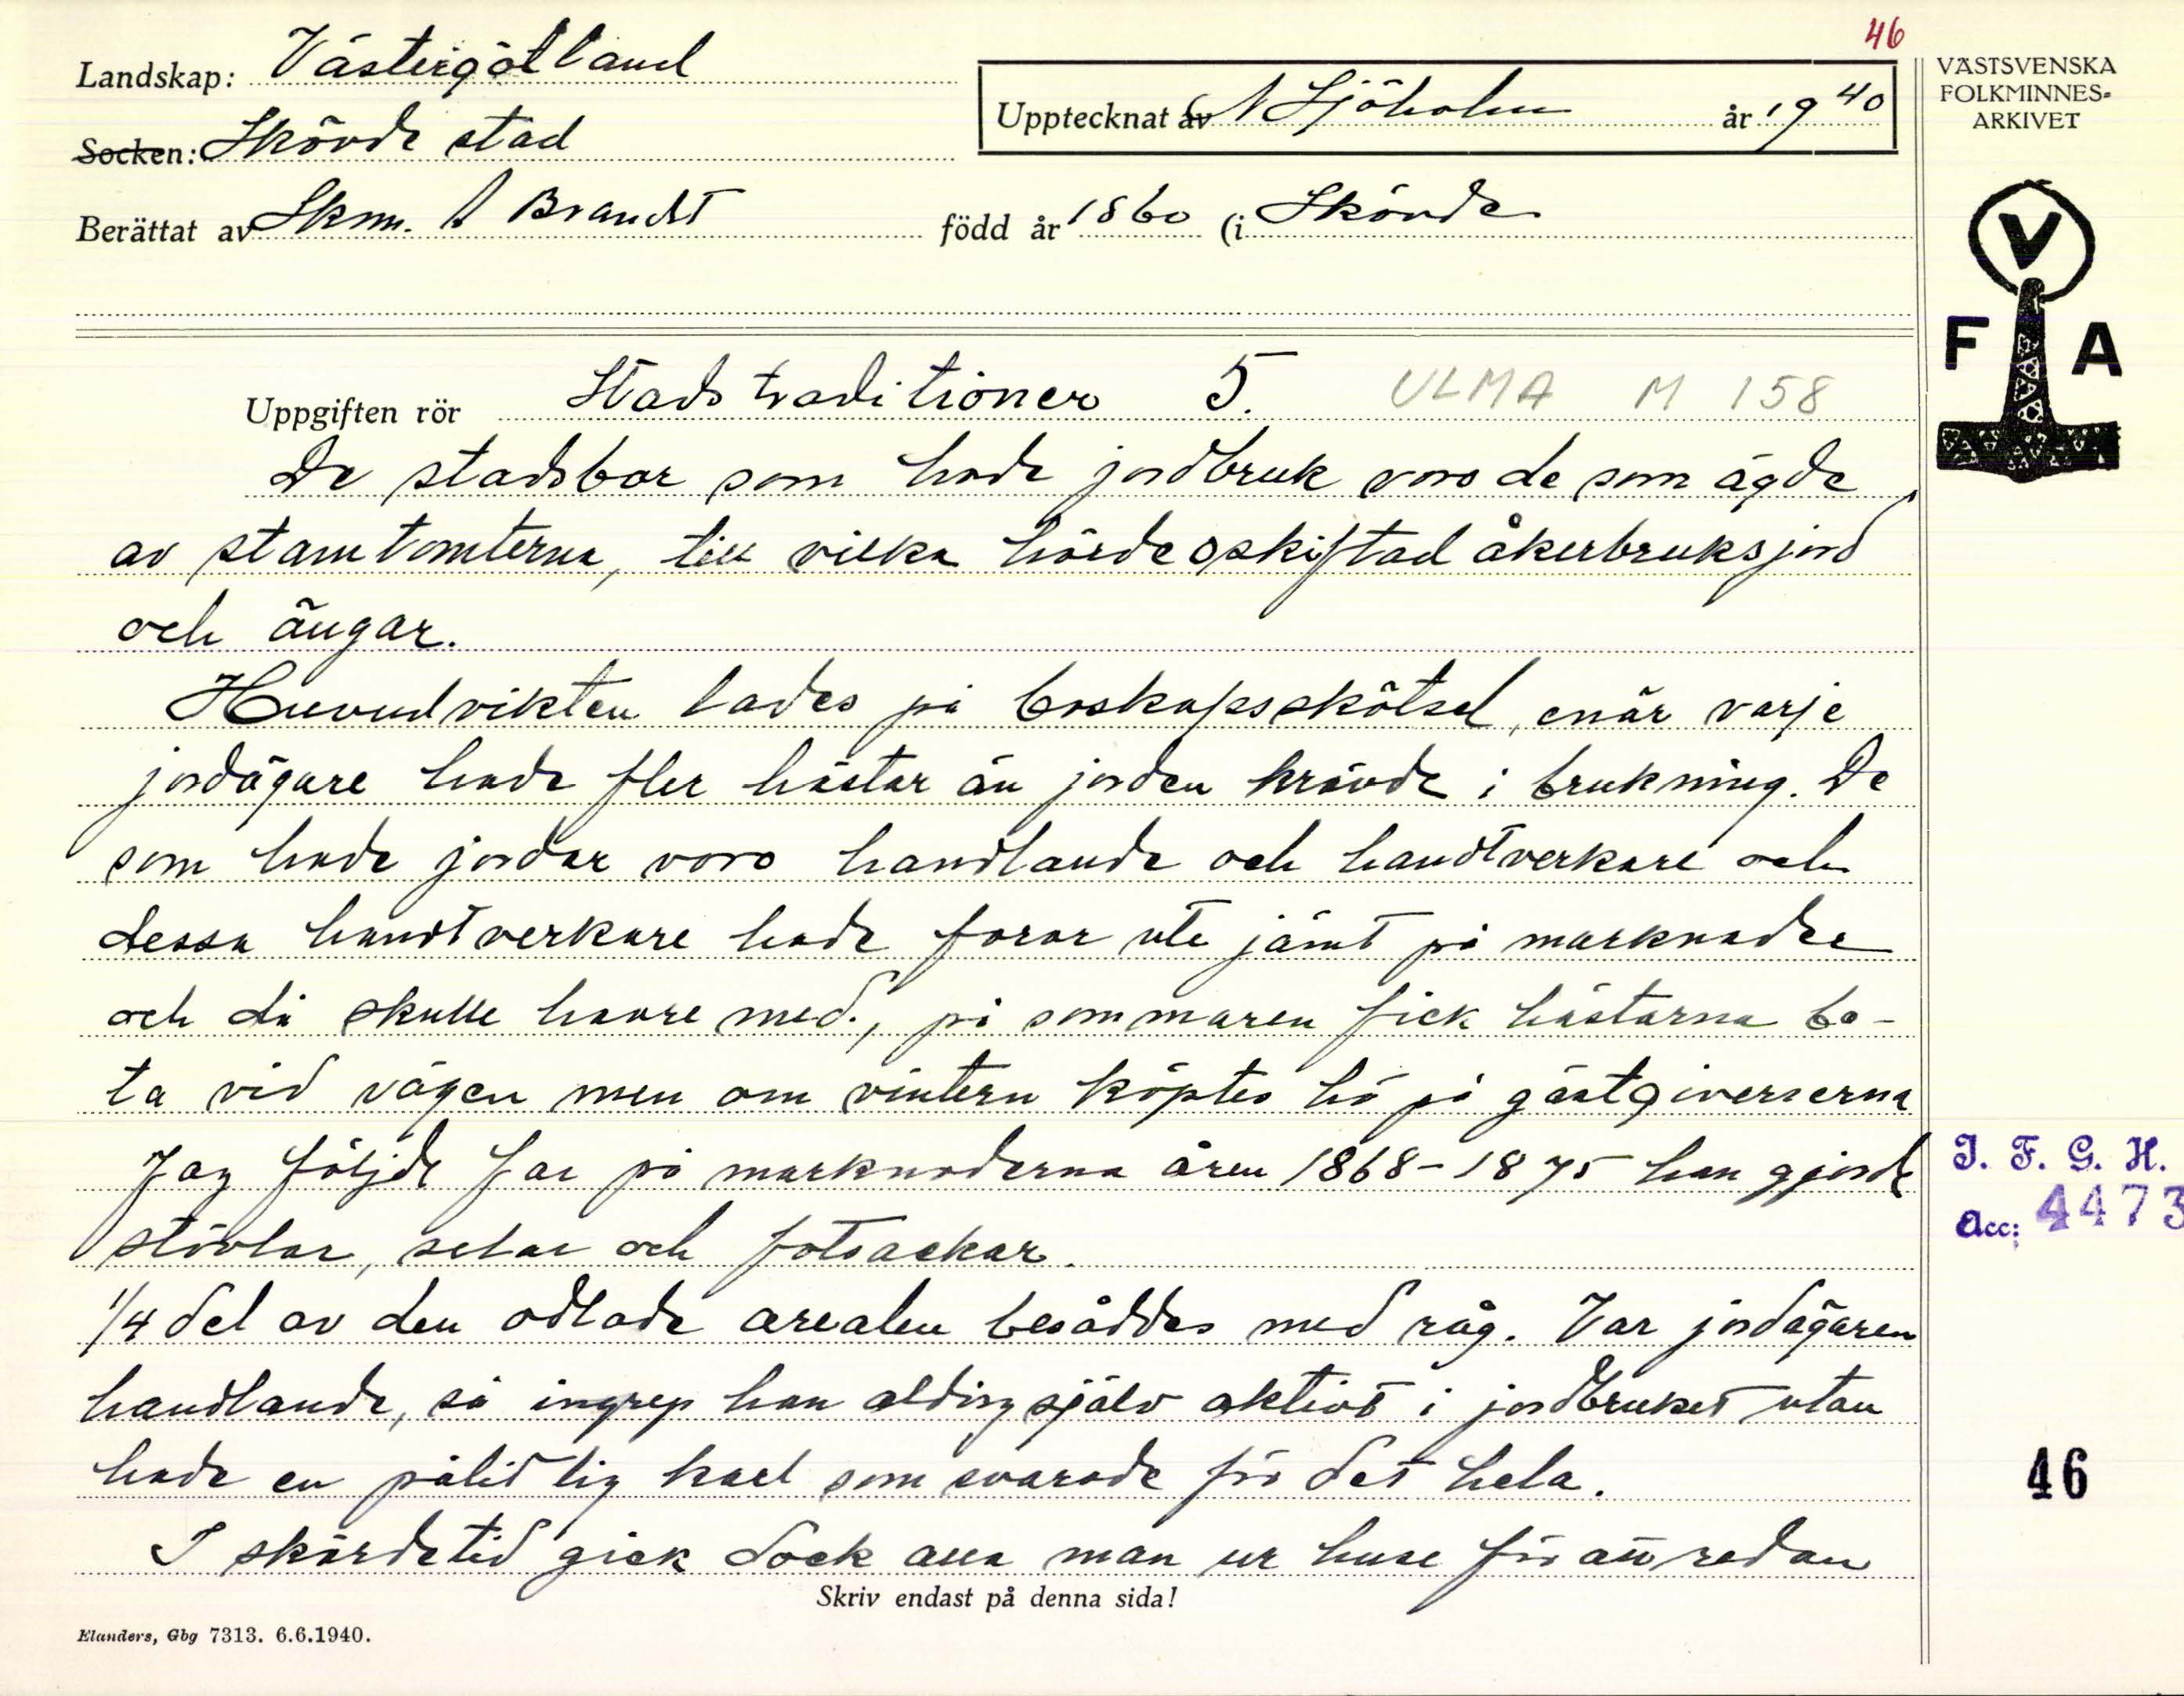 46
Landskap: Västergötland
Upptecknat av N Sjöholm år 1940
VÄSTSVENSKA
FOLKMINNES-
ARKIVET
Socken: Skövde stad
Berättat av Skm. A Brandt född år 1860 (i Skövde
V
F A
Uppgiften rör Stadstraditioner 5. ULMA M 158
De stadsbor som hade jordbruk voro de som ägde
av stamtomterna, till vilka hörde oskiftad åkerbruksjord
och ängar.
Huvudvikten lades på boskapsskötsel, enär varje
jordägare hade fler hästar än jorden krävde i brukning. De
som hade jordar voro handlande och handtverkare och
dessa handtverkare hade foror ute jämt på marknader
och då skulle havre med., på sommaren fick hästarna be-
ta vid vägen men om vintern köptes hö på gästgiverierna
Jag följde far på marknaderna åren 1868-1875 han gjorde
stövlar, selar och fotsackar.
1/4 del av den odlade arealen besåddes med råg. Var jordägaren
handlande, så ingrep han aldrig själv aktivt i jordbruket utan
hade en pålitlig karl som svarade för det hela.
I skördetid gick dock alla man ur huse för att redan
Skriv endast på denna sida!
Elanders, Gbg 7313. 6.6.1940.
I. F. G. H.
Acc: 4473
46